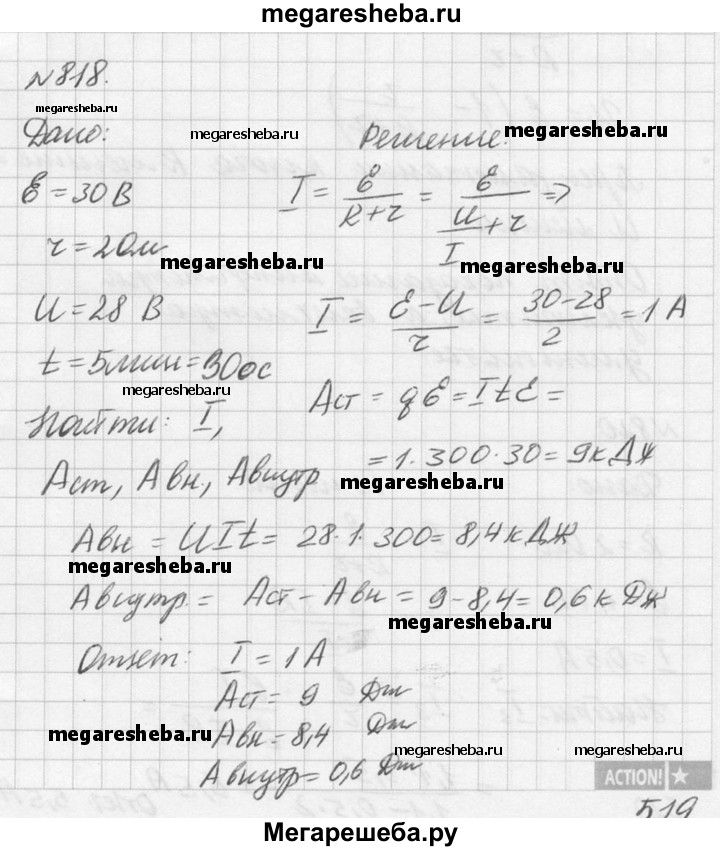 megaresheba.ru
№818.
megaresheba.ru
Дано: megaresheba.ru Решение: megaresheba.ru
Ɛ = 30 В I = Ɛ/(R+r) = Ɛ/(U/I + r) ⇒
r = 2 Ом megaresheba.ru
U = 28 В I = (Ɛ-U)/r = (30-28)/2 = 1 А
t = 5мин = 300с
megaresheba.ru
Найти: I, Aст = qƐ = ItƐ =
= 1·300·30 = 9кДж
Аст, Авн., Авнутр megaresheba.ru
Авн = UIt = 28·1·300 = 8,4 кДж
megaresheba.ru
Авнутр. = Аст - Авн = 9-8,4 = 0,6 кДж
megaresheba.ru
Ответ: I = 1 А
Аст = 9 Дж
megaresheba.ru Авн = 8,4 Дж
megaresheba.ru megaresheba.ru
Авнутр = 0,6 Дж
ACTION!
519
Мегарешеба.ру